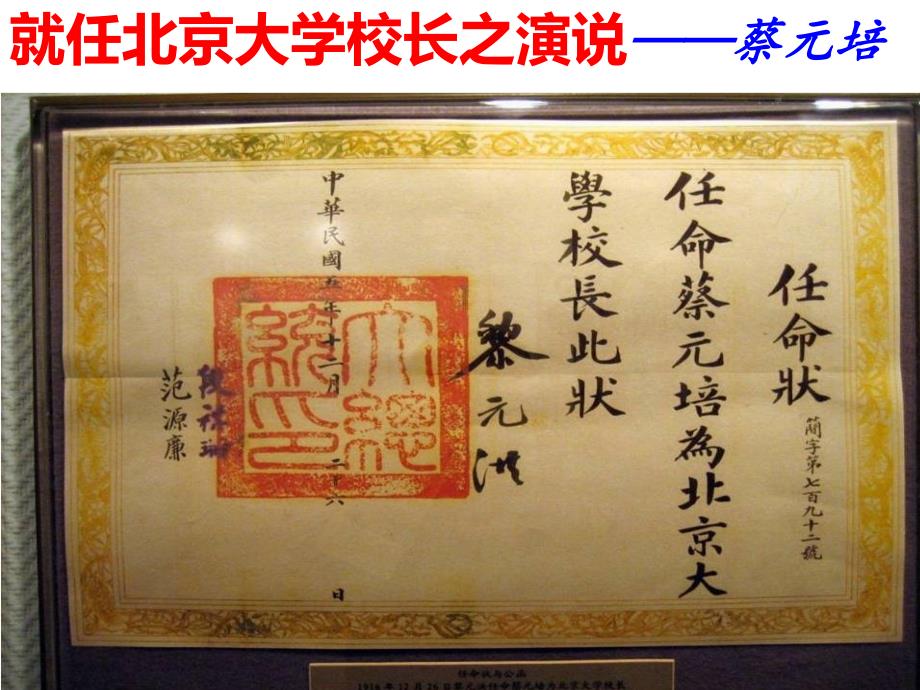 就任北京大学校长之演说——蔡元培
任命狀
簡字第七百九十二號
任命蔡元培為北京大
學校長此狀
黎元洪
大總
統印
中華民國五年十二月二十六日
段祺瑞
范源廉
任命状与公函
1916年12月26日黎元洪任命蔡元培为北京大学校长